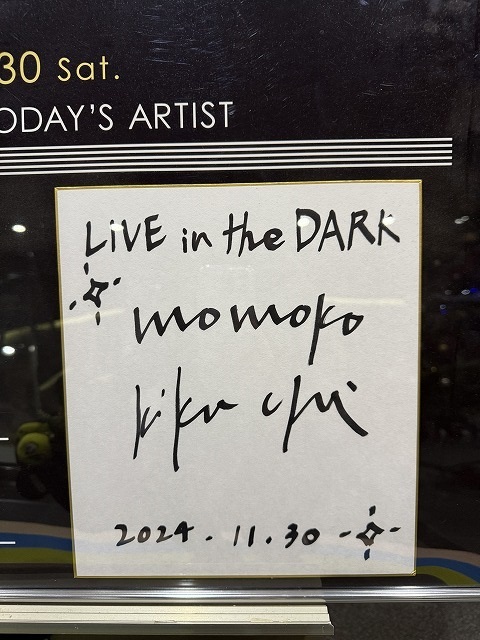 30 Sat.
ODAY'S ARTIST
LiVE in the DARK
momoko
kikuchi
2024.11.30